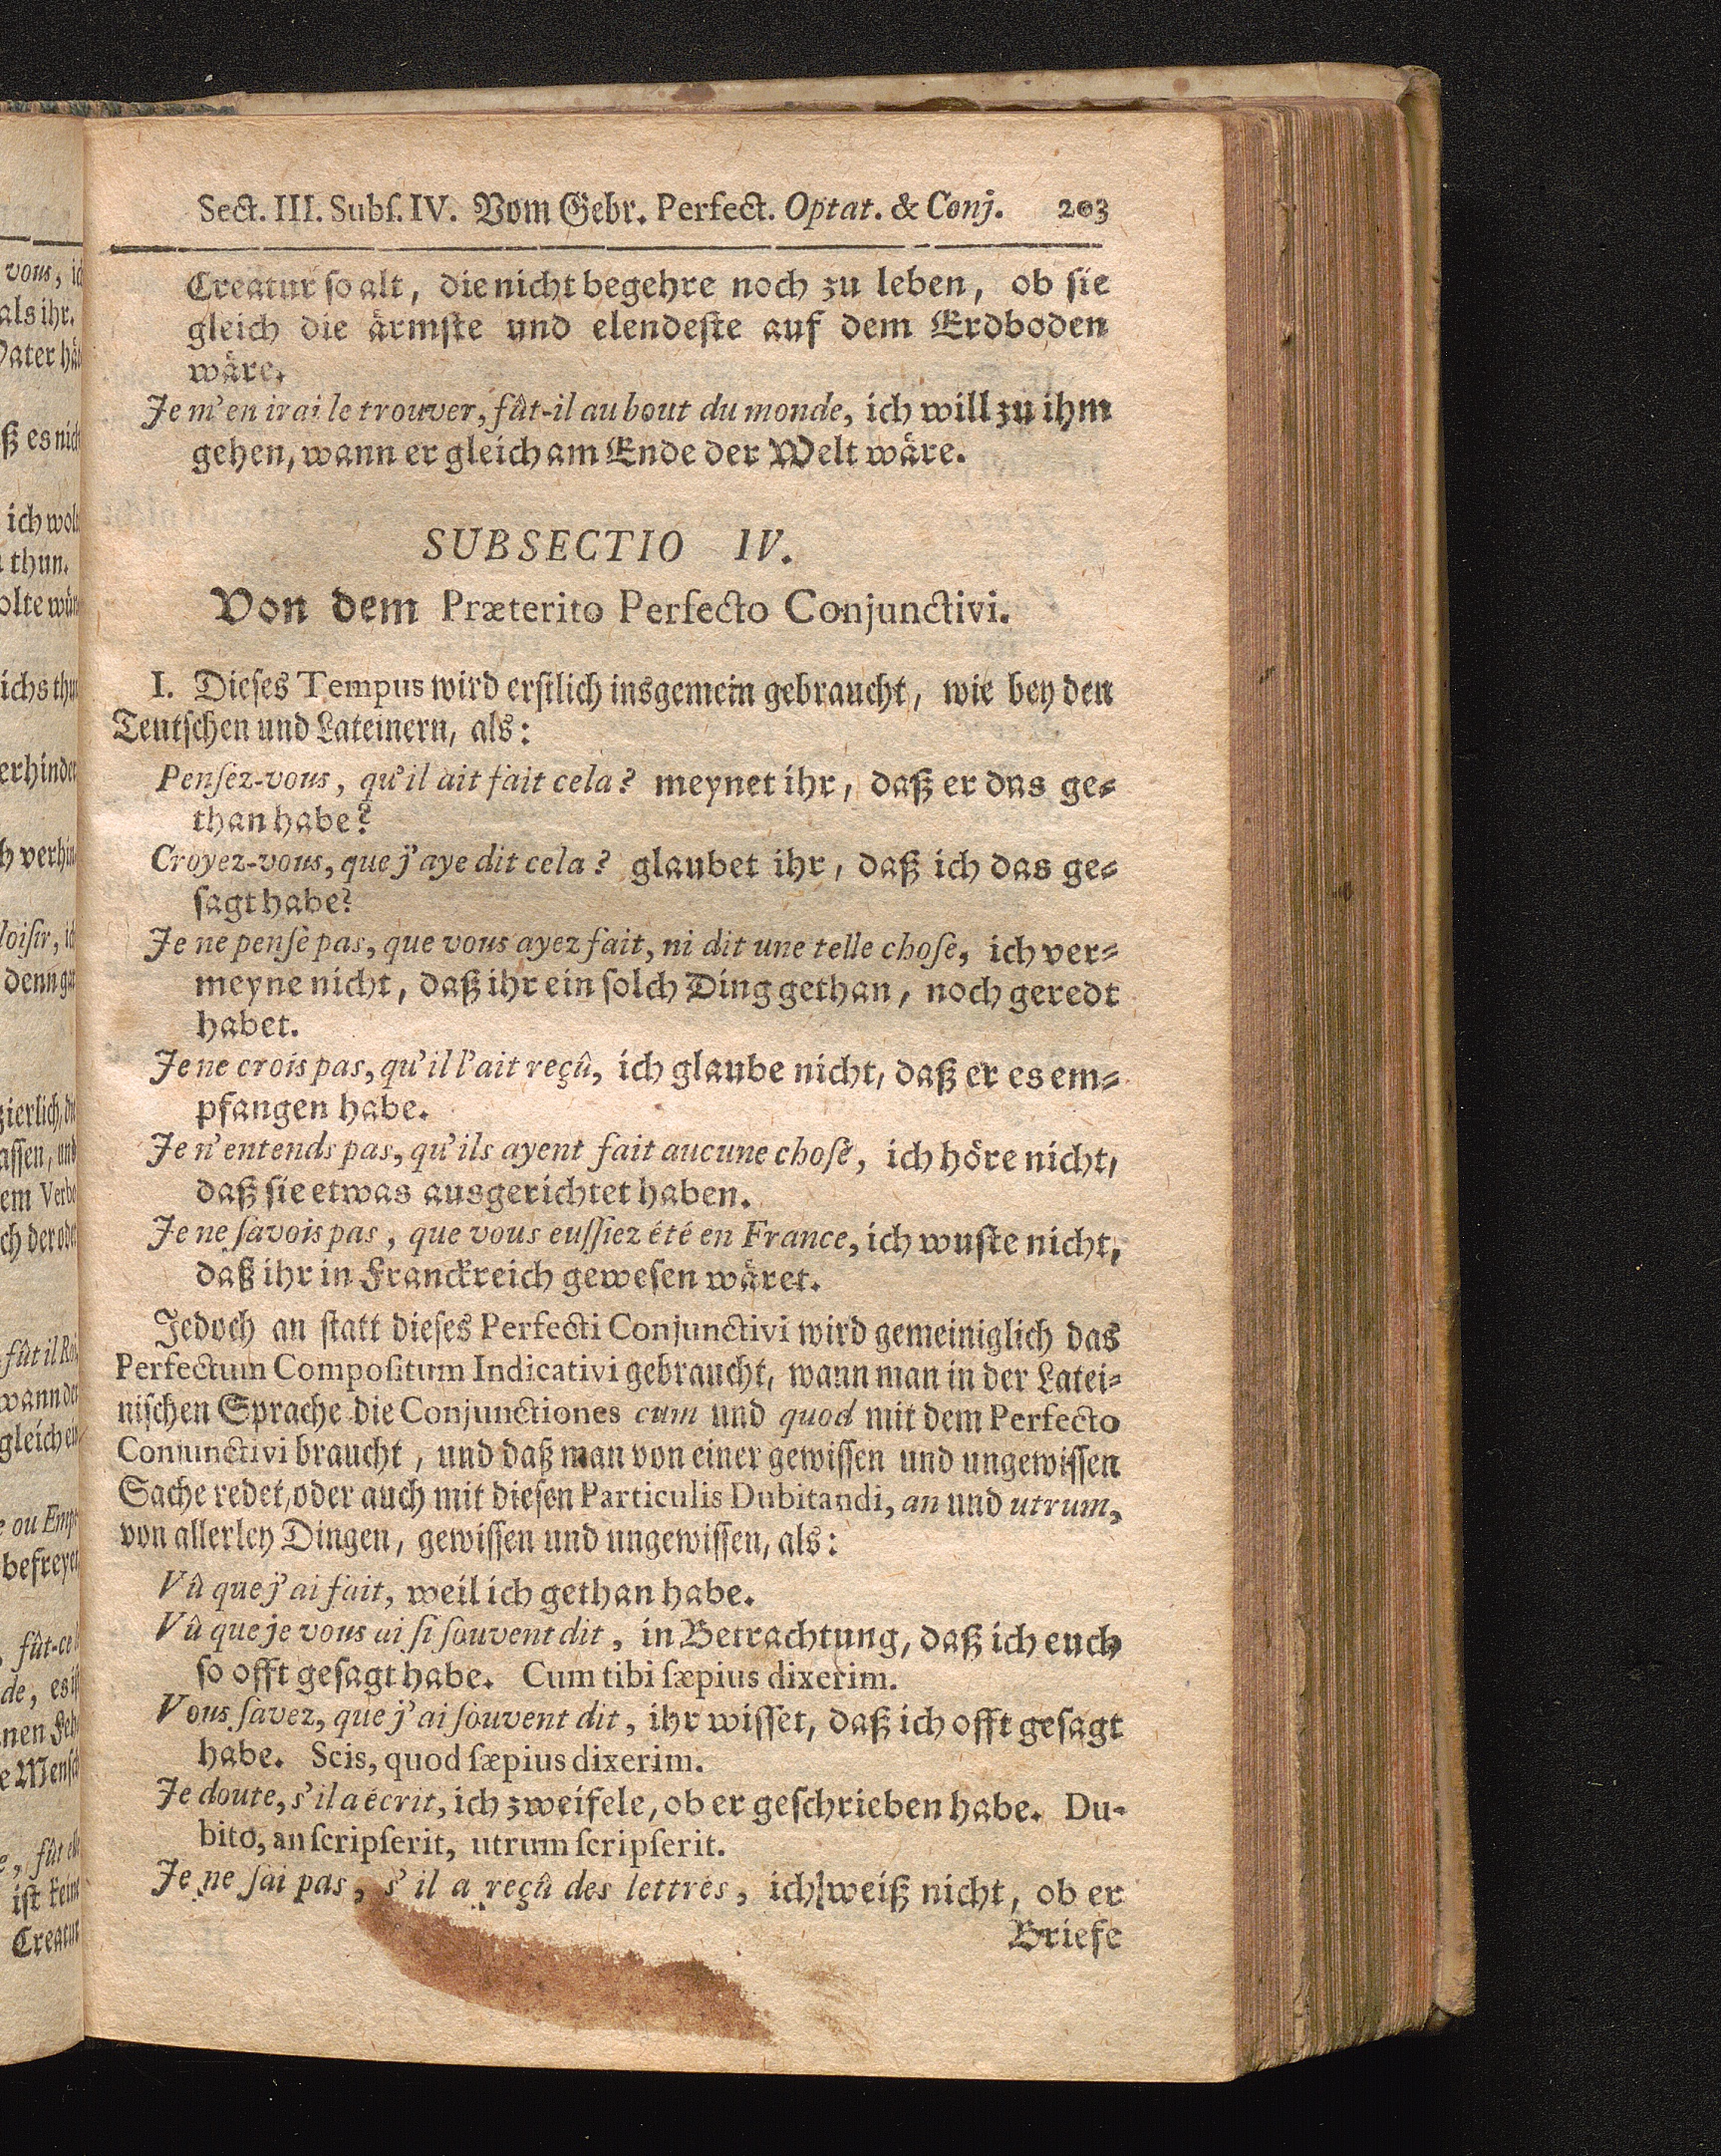 Sect. III. Subſ. IV. Vom Gebr. Perfect. Optat. & Conj. 203
Creatur ſo alt, die nicht begehre noch zu leben, ob ſie
gleich die ärmſte und elendeſte auf dem Erdboden
wäre.
Je m'en irai le trouver, fût-il au bout du monde, ich will zu ihm
gehen, wann er gleich am Ende der Welt wäre.
SUBSECTIO IV.
Von dem Præterito Perfecto Conjunctivi.
I. Dieſes Tempus wird erſtlich insgemein gebraucht, wie bey den
Teutſchen und Lateinern, als:
Penſez-vous, qu'il ait fait cela? meynet ihr, daß er das ge-
than habe?
Croyez-vous, que j'aye dit cela? glaubet ihr, daß ich das ge-
ſagt habe?
Je ne penſe pas, que vous ayez fait, ni dit une telle choſe, ich ver-
meyne nicht, daß ihr ein ſolch Ding gethan, noch geredt
habet.
Je ne crois pas, qu'il l'ait reçû, ich glaube nicht, daß er es em-
pfangen habe.
Je n'entends pas, qu'ils ayent fait aucune choſe, ich höre nicht,
daß ſie etwas ausgerichtet haben.
Je ne ſavois pas, que vous euſſiez été en France, ich wuſte nicht,
daß ihr in Franckreich geweſen wäret.
Jedoch an ſtatt dieſes Perfecti Conjunctivi wird gemeiniglich das
Perfectum Compoſitum Indicativi gebraucht, wann man in der Latei-
niſchen Sprache die Conjunctiones cum und quod mit dem Perfecto
Conjunctivi braucht, und daß man von einer gewiſſen und ungewiſſen
Sache redet, oder auch mit dieſen Particulis Dubitandi, an und utrum,
von allerley Dingen, gewiſſen und ungewiſſen, als:
Vû que j'ai fait, weil ich gethan habe.
Vû que je vous ai ſi ſouvent dit, in Betrachtung, daß ich euch
ſo offt geſagt habe. Cum tibi ſæpius dixerim.
Vous ſavez, que j'ai ſouvent dit, ihr wiſſet, daß ich offt geſagt
habe. Scis, quod ſæpius dixerim.
Je doute, s'il a écrit, ich zweifele, ob er geſchrieben habe. Du-
bito, an ſcripſerit, utrum ſcripſerit.
Je ne ſai pas, s'il a reçû des lettres, ich weiß nicht, ob er
Briefe